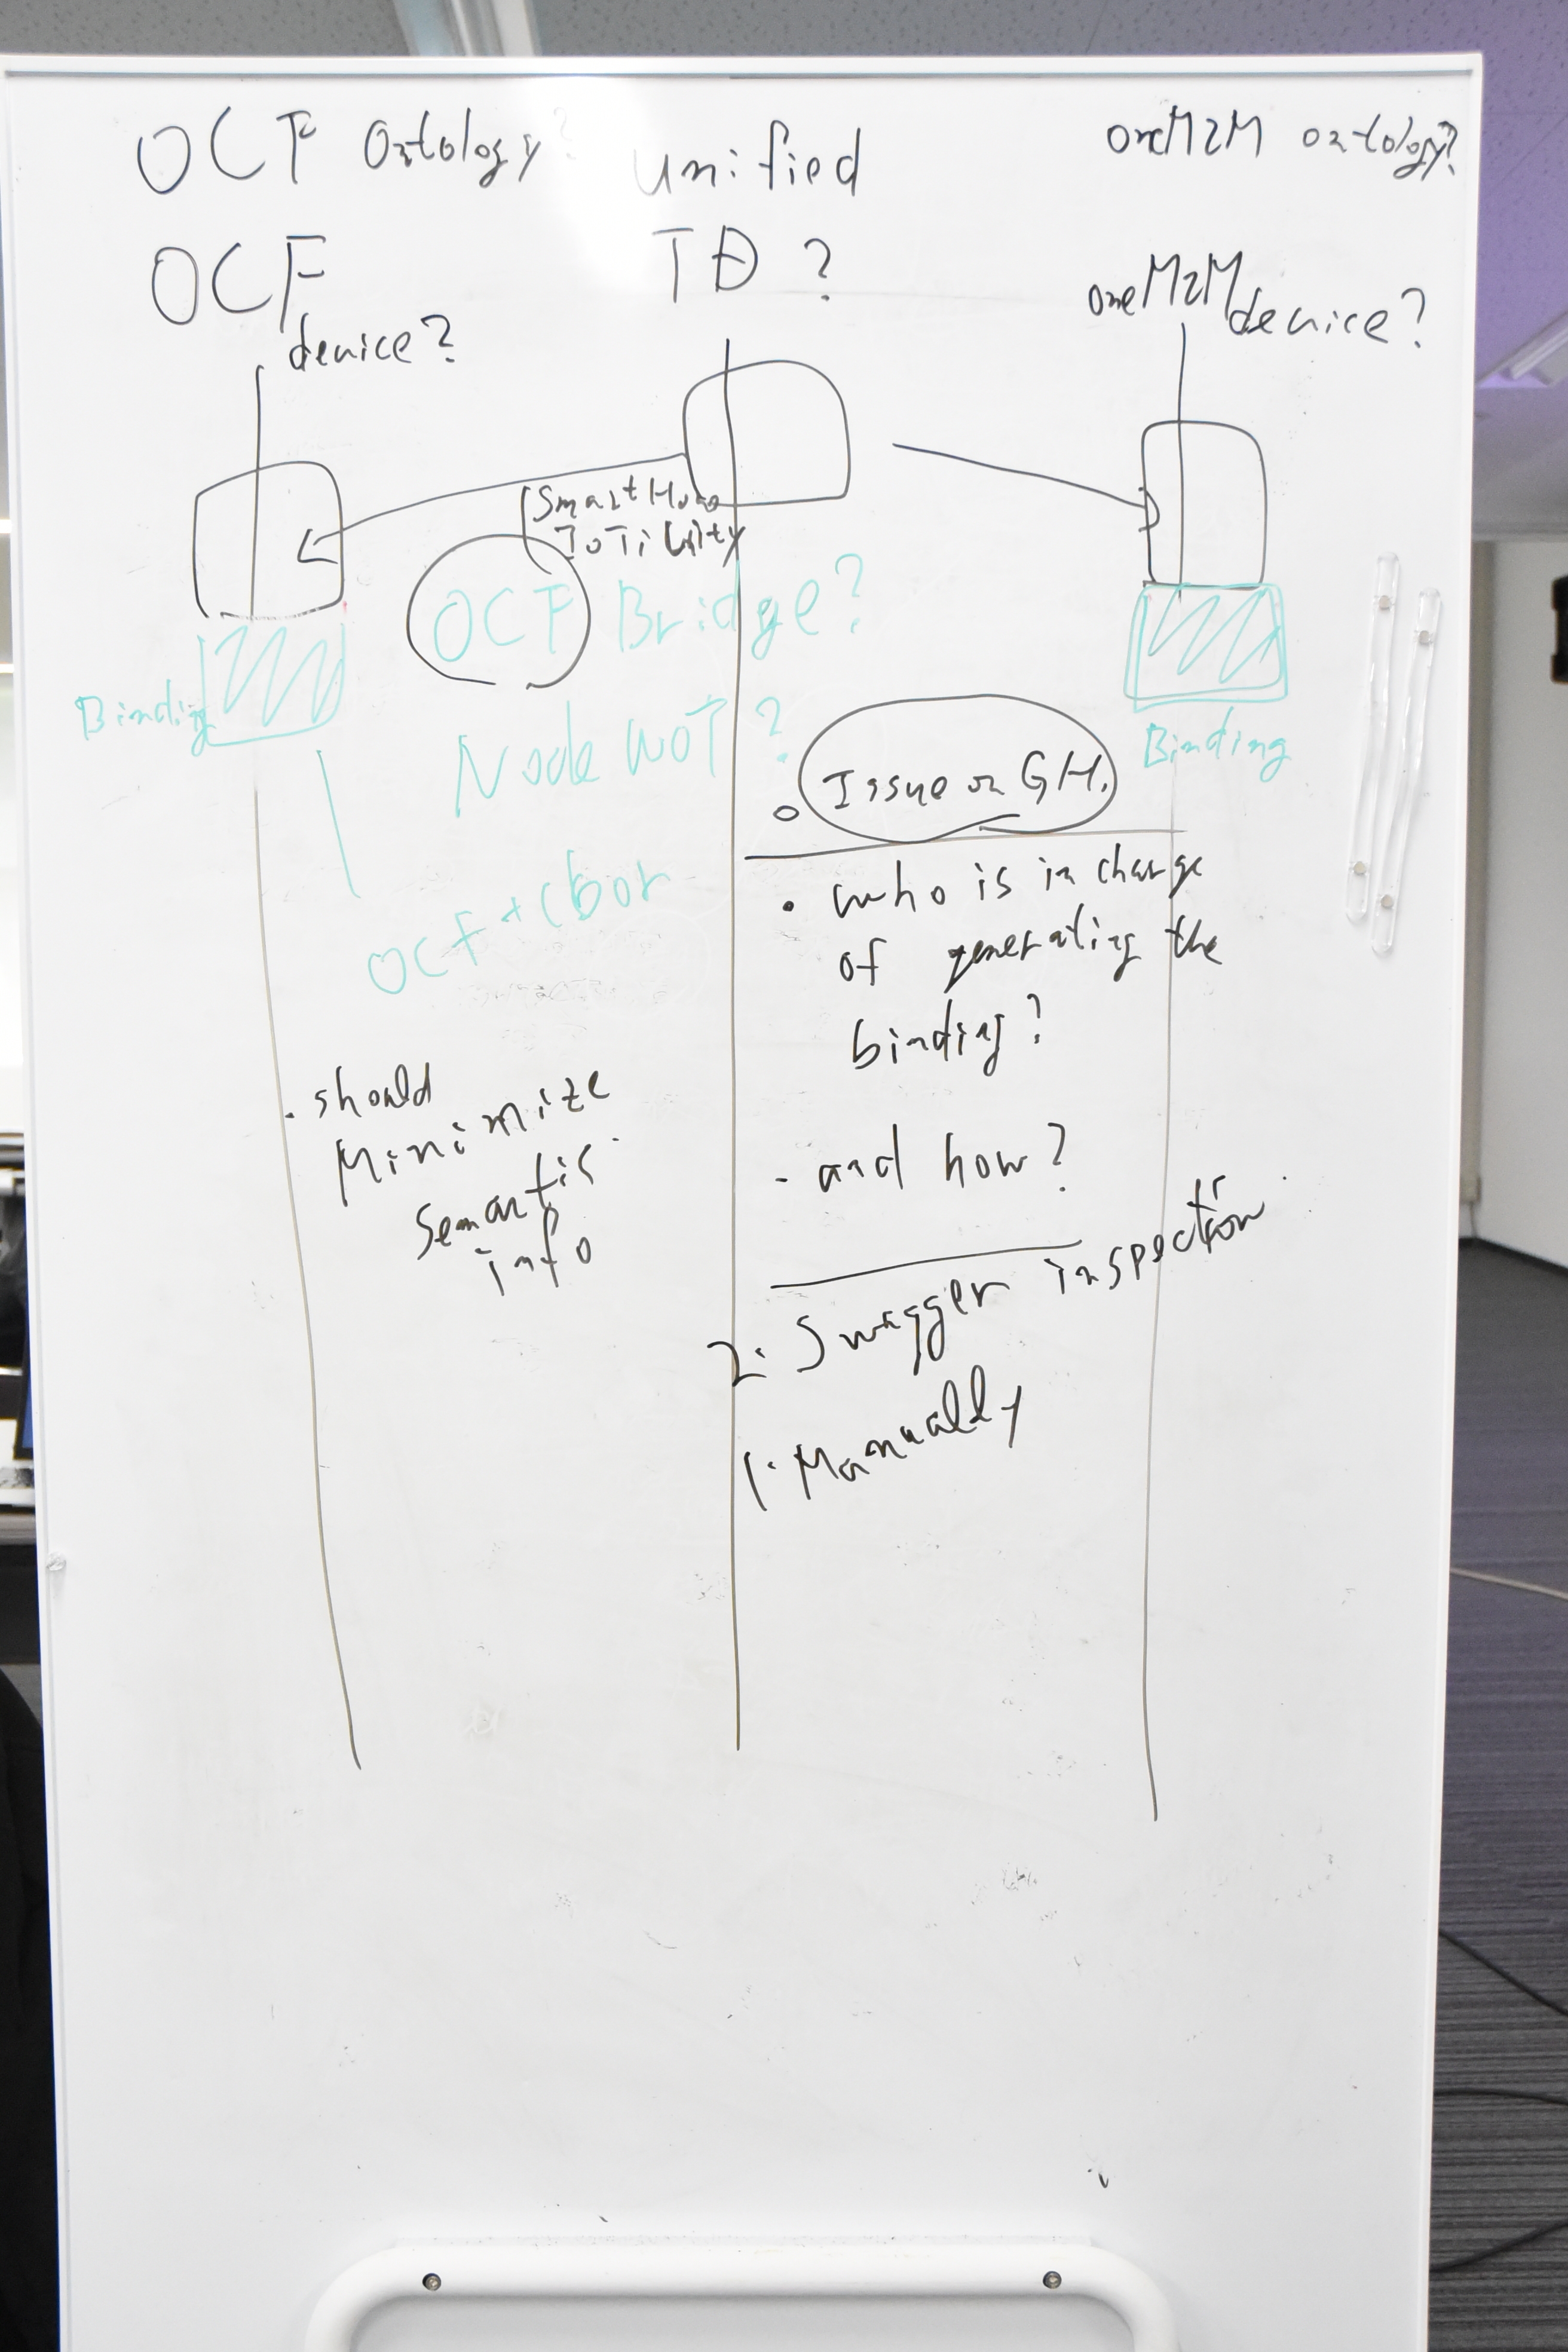 OCF Ontology?
unified
TD ?
oneM2M ontology?
OCF
device?
oneM2M
device?
Smart Home
OCF Bridge?
Binding
Node WoT ?
Binding
OCF + cbor
Issue on GH.
• who is in charge
of generating the
binding?
- and how?
. should
Minimize
Semantic
info
2. Swagger inspection
1. Manually